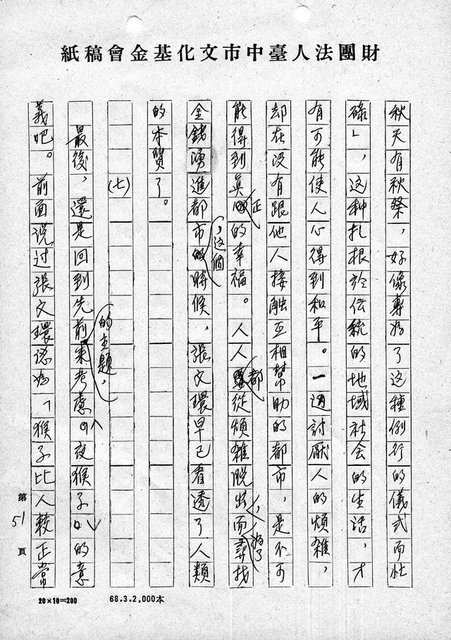 財團法人臺中市文化基金會稿紙
秋天有秋祭，好像專為了这種例行的儀式而忙
碌」，这种扎根於伝統的地域社会的生活，才
有可能使人心得到和平。一边討厭人的煩雜，
却在没有跟他人接触互相幫助的都市，是不可
能得到真正的幸福。人人都從煩雜脫出，而為了尋找
金錢湧進都市，这個時候，張文環早已看透了人類
的本質了。
(七)
最後，還是回到先前的主題，考慮〈夜猴子〉的意
義吧。前面说过張文環認為，「猴子比人較正常
第51頁
20×10=200 68.3.2,000本